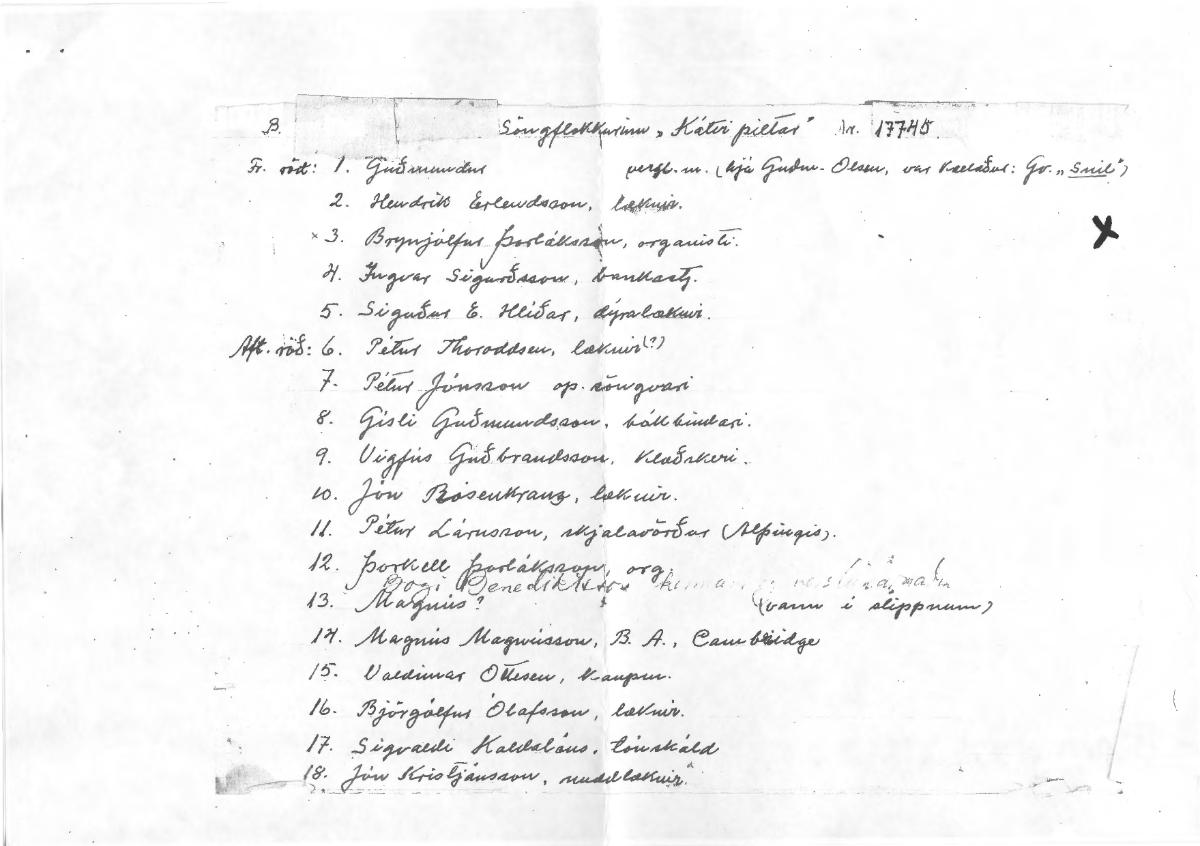 B. Söngflokkurinn „Kátir piltar" Nr. 17745
Fr. röð: 1. Guðmundur verzl.m. (hjá Guðm. Olsen, var kallaður: Gv. „Snil")
2. Hendrik Erlendsson, læknir.
× 3. Brynjólfur Þorláksson, organisti. X
4. Ingvar Sigurðsson, bankastj.
5. Siguður E. Hlíðar, dýralæknir.
Aft. röð: 6. Pétur Thoroddsen, læknir (?)
7. Pétur Jónsson op. söngvari
8. Gísli Guðmundsson, bókbindari.
9. Vigfús Guðbrandsson, klæðskeri.
10. Jón Rósenkranz, læknir.
11. Pétur Lárusson, skjalavörður (Alþingis).
12. Þorkell Þorláksson, org.
Bogi Benediktsson
13. Magnús? (vann í slippnum)
14. Magnús Magnússon, B. A., Cambridge
15. Valdimar Ottesen, kaupm.
16. Björgólfur Ólafsson, læknir.
17. Sigvaldi Kaldalóns. tónskáld
18. Jón Kristjánsson, nuddlæknir